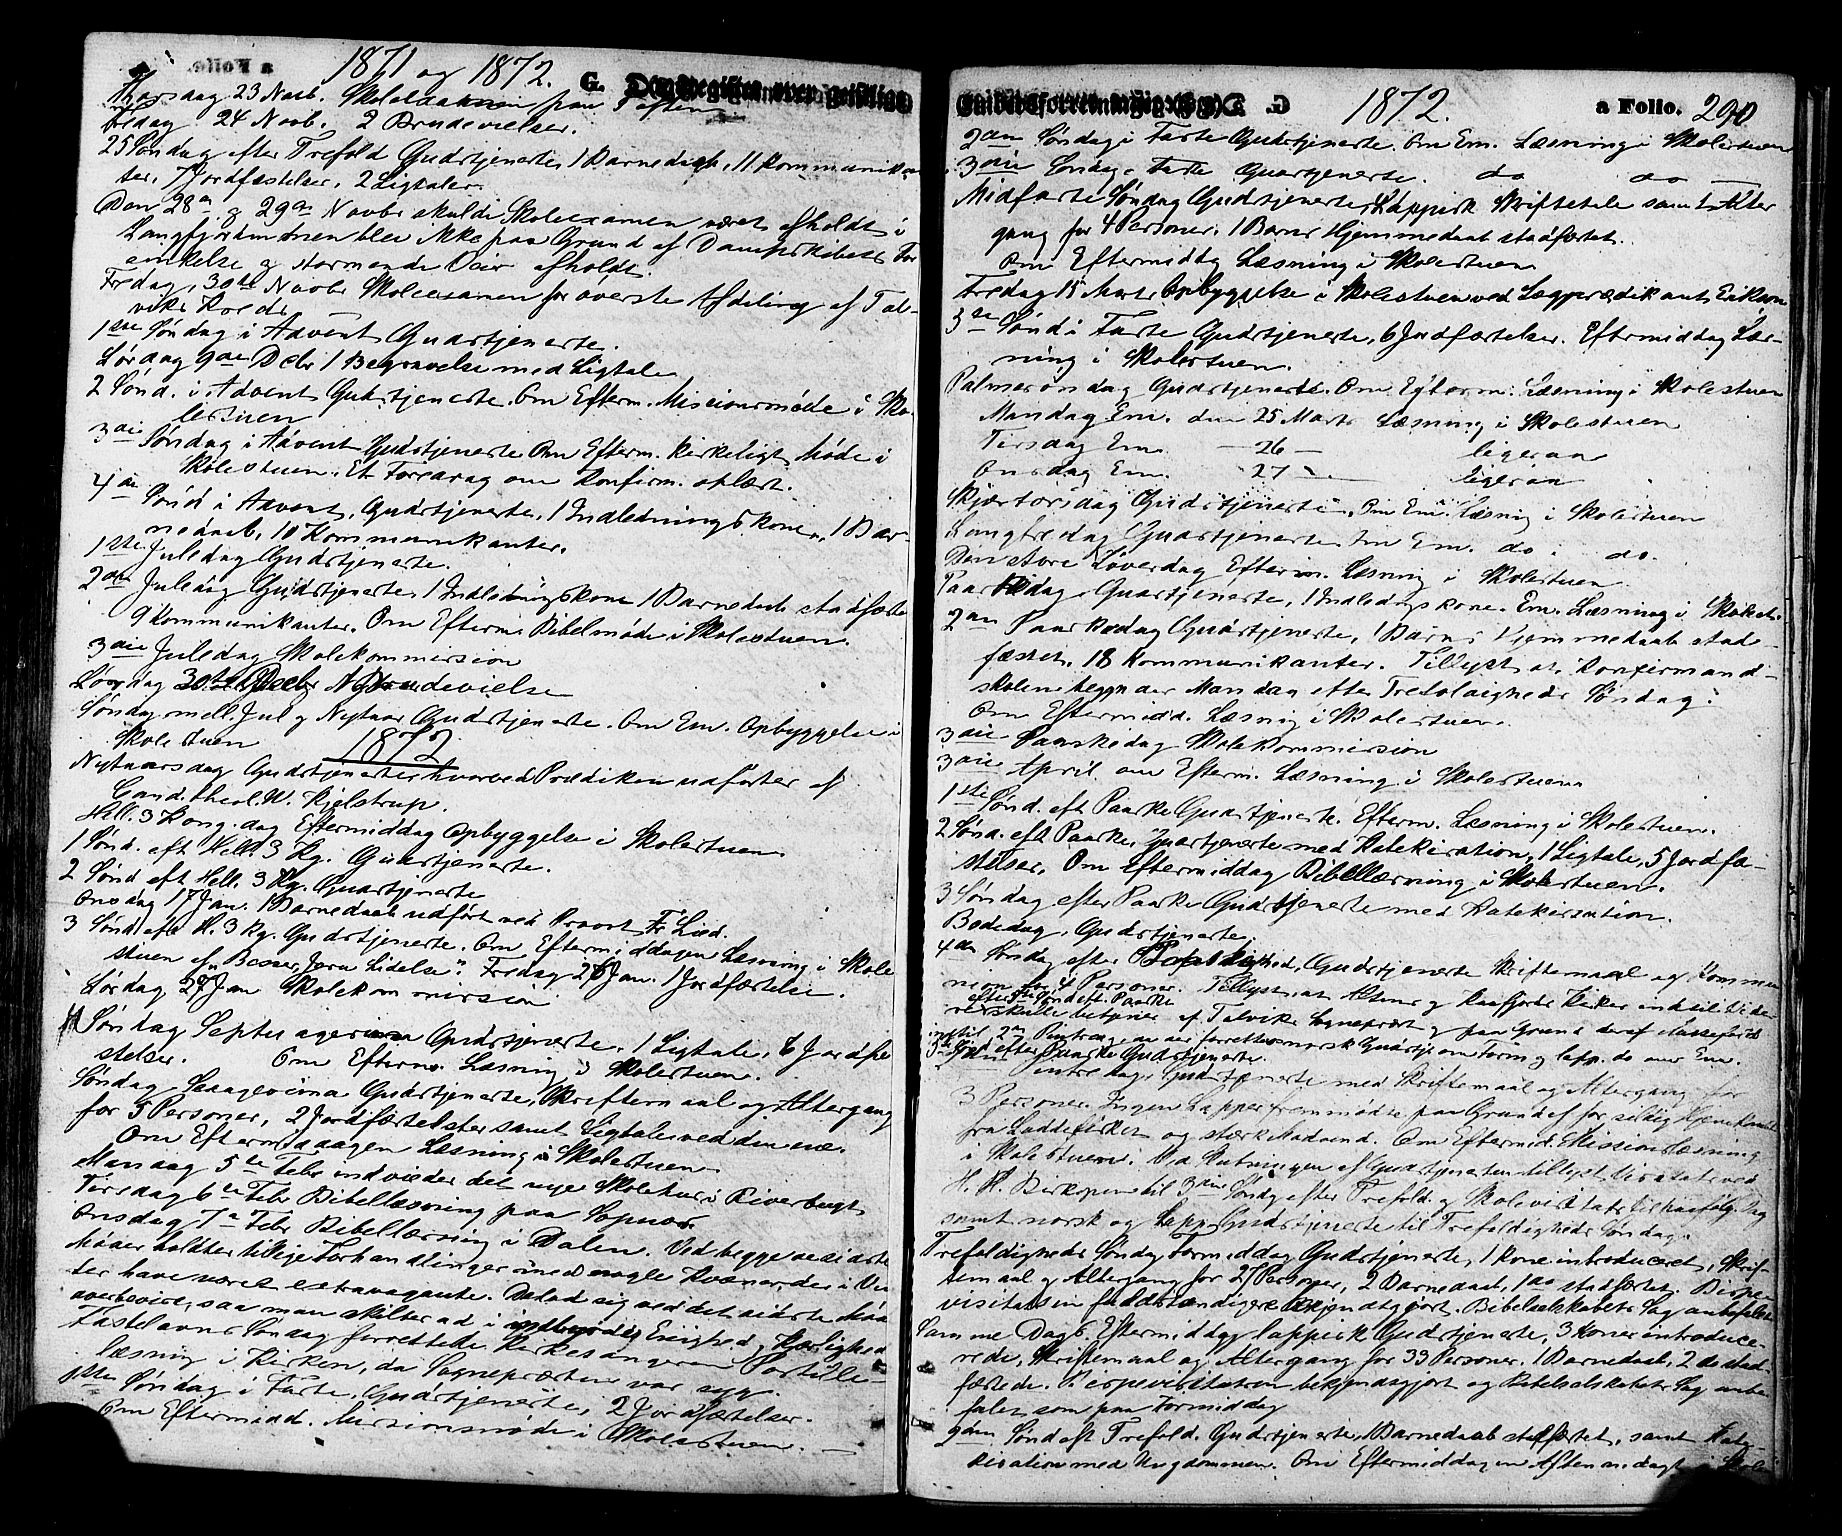 1871 og 1872.
G. Dagregister over geistlige
Torsdag 23 Novb. Skoleexamen paa
Fredag 24 Novb. 2 Brudevielser.
25 Søndag efter Trefold Gudstjeneste, 1 Barnedaab, 11 Kommunikan
ter, 7 Jordfæstelser, 2 Ligtaler.
Den 28de og 29de Novbr skulde Skoleexamen været afholdt i
Langfjorden men blev ikke paa Grund af Dampskibets For
sinkelse og stormende Veir afholdt.
Fredag, 30te Novbr Skoleexamen for øverste Afdeling af Tal-
viks Kreds
1ste Søndag i Advent Gudstjeneste.
Lørdag 9de Decbr 1 Begravelse med Ligtale
2 Sønd. i Advent Gudstjeneste. Om Efterm. Missionsmøde i Sko
lestuen
3die Søndag i Advent Gudstjeneste Om Efterm. kirkeligt Møde i
Skolestuen. Et Foredrag om Konfirm. oplæst.
4de Sønd i Advent, Gudstjeneste, 1 Indledningskone, 1 Bar-
nedaab, 10 Kommunikanter.
1ste Juledag Gudstjeneste.
2den Juledag Gudstjeneste, 1 Indledningskone 1 Barnedaab stadfæstet
9 Kommunikanter. Om Efterm. Bibelmøde i Skolestuen.
3die Juledag Skolekommission
Lørdag 30te Decbr Brudevielse
Søndag mell. Jul og Nytaar Gudstjeneste. Om Em. Opbyggelse i
Skolestuen
1872
Nytaarsdag Gudstjeneste hvorved Prædiken udførtes af
Cand. theol. W. Kjelstrup.
Hell. 3 Kong. dag Eftermiddag Opbyggelse i Skolestuen
1 Sønd. eft Hell. 3 Kg. Gudstjeneste.
2 Sønd eft Hell. 3 Kg. Gudstjeneste
Onsdag 17 Jan. 1 Barnedaab udført ved Provst Fr. Lied.
3 Sønd eft H. 3 Kg. Gudstjeneste. Om Eftermiddagen Læsning i Skole
stuen af Besser, Jesu Lidelse". Fredag 26 Jan. 1 Jordfæstelse.
Lørdag 27 Jan Skolekommission
Søndag Septuagesima Gudstjeneste. 1 Ligtale, 6 Jordfæ
stelser. Om Efterm. Læsning i Skolestuen.
Søndag Sexagesima Gudstjeneste, Skriftemaal og Altergang
for 5 Personer, 2 Jordfæstelser samt Ligtale ved den ene.
Om Eftermiddagen Læsning i Skolestuen
Mandag 5te Febr indviedes det nye Skolehus i Riverbugt
Tirsdag 6te Febr Bibellæsning paa Sopnæs.
Onsdag 7de Febr Bibellæsning i Dalen. Ved begge de sidste
Møder holdtes tillige Forhandlinger med nogle Kvæner, der i Vin
ter have været extravagante. De lod sig ved det sidste Møde
overbevise, saa man skiltes ad i indbyrdes Enighed, Kjærlighed
Fastelavns Søndag forrettede Kirkesangeren Postille-
læsning i Kirken, da Sognepræsten var syg.
1ste Søndag i Faste, Gudstjeneste, 2 Jordfæstelser.
Om Eftermidd. Missionsmøde i Skolestuen.
1872.
a Folio. 290
2den Søndag i Faste Gudstjeneste. Om Em. Læsning i Skolestuen
3die Søndag i Faste Gudstjeneste. do do
Midfaste Søndag Gudstjeneste, Lappisk Skriftetale samt Alter
gang for 4 Personer. 1 Barns Hjemmedaab stadfæstet.
Om Eftermiddag Læsning i Skolestuen
Fredag 15 Marts Opbyggelse i Skolestuen ved Lægprædikant Eriksen
Sønd i Faste Gudstjeneste, 6 Jordfæstelser. Eftermiddag Læs-
ning i Skolestuen.
Palmesøndag Gudstjeneste. Om Efterm. Læsning i Skolestuen
Mandag Em. den 25 Marts Læsning i Skolestuen
Tirsdag Em. — 26 — ligesaa
Onsdag Em. 27 — ligesaa
Skjærtorsdag Gudstjeneste, Om Em. Læsnig i Skolestuen
Langfredag Gudstjeneste Om Em. do i do.
Den store Løverdag Efterm. Læsning i Skolestuen
Paaskedag Gudstjeneste, 1 Indledngskone. Em. Læsning i Skolest.
2den Paaskedag Gudstjeneste, 1 Barns Hjemmedaab stad-
fæstet, 18 Kommunikanter. Tillyst at Konfirmand-
skolen begynder Mandag efter Trefoldigheds Søndag.
Om Eftermidd. Læsnig i Skolestuen.
3die Paaskedag Skolekommission
3die April om Efterm. Læsning i Skolestuen
1ste Sønd. eft Paaske Gudstjeneste. Efterm. Læsning i Skolestuen.
2 Sønd. eft Paaske, Gudstjeneste med Katekisation, 1 Ligtale, 5 Jordfæ-
stelser. Om Eftermiddag Bibellæsning i Skolestuen.
3 Søndag efter Paaske Gudstjeneste med Katekisation.
Bededag, Gudstjeneste.
4de Søndag efter Gudstjeneste Skriftemaal og Kommu
nion for 4 Personer. Tillyst, at Altens og Kaafjords Kirker indtil Videre
efter 5te Sønd eft. Paaske
skulle betjenes af Talviks Sognepræst og paa Grund deraf
indtil 2den Pintsedag
5te Sønd efter Paaske Gudstjeneste.
Pintsedag, Gudstjeneste med Skriftemaal og Altergang for
3 Personer. Ingen Lapper fremmødte paa Grund af for sildig Hjemkomst
fra Loddefisket og stærk Modvind. Om Eftermidd. Missionslæsning
i Skolestuen. Ved Slutningen af Gudstjenesten tillyst Visitats ved
H. H. Biskopen til 3die Søndg efter Trefold. og Skolevisitats Dagen
samt norsk og lapp. Gudstjeneste til Trefoldigheds Søndag.
Trefoldigheds Søndag Formiddag Gudstjeneste, 1 Kone introduceret, Skrif-
temaal og Altergang for 27 Personer, 2 Barnedaab, 1 do stadfæstet. Bispe
visitatsen fuldstændigere bekjendtgjort. Bibelselskabets Sag anbefalet
Samme Dags Eftermiddag lappisk Gudstjeneste, 3 Koner introduce-
rede, Skriftemaal og Altergang for 33 Personer. 1 Barnedaab, 2 do stad
fæstede. Bispevisitatsen bekjendtgjort og Bibelselskabets Sag anbe
falet som paa Formiddag
Sønd eft Trefold. Gudstjeneste, 1 Barnedaab stadfæstet, samt Kate-
kisation med Ungdommen. Om Eftermiddagen Aftenandagt i Skole